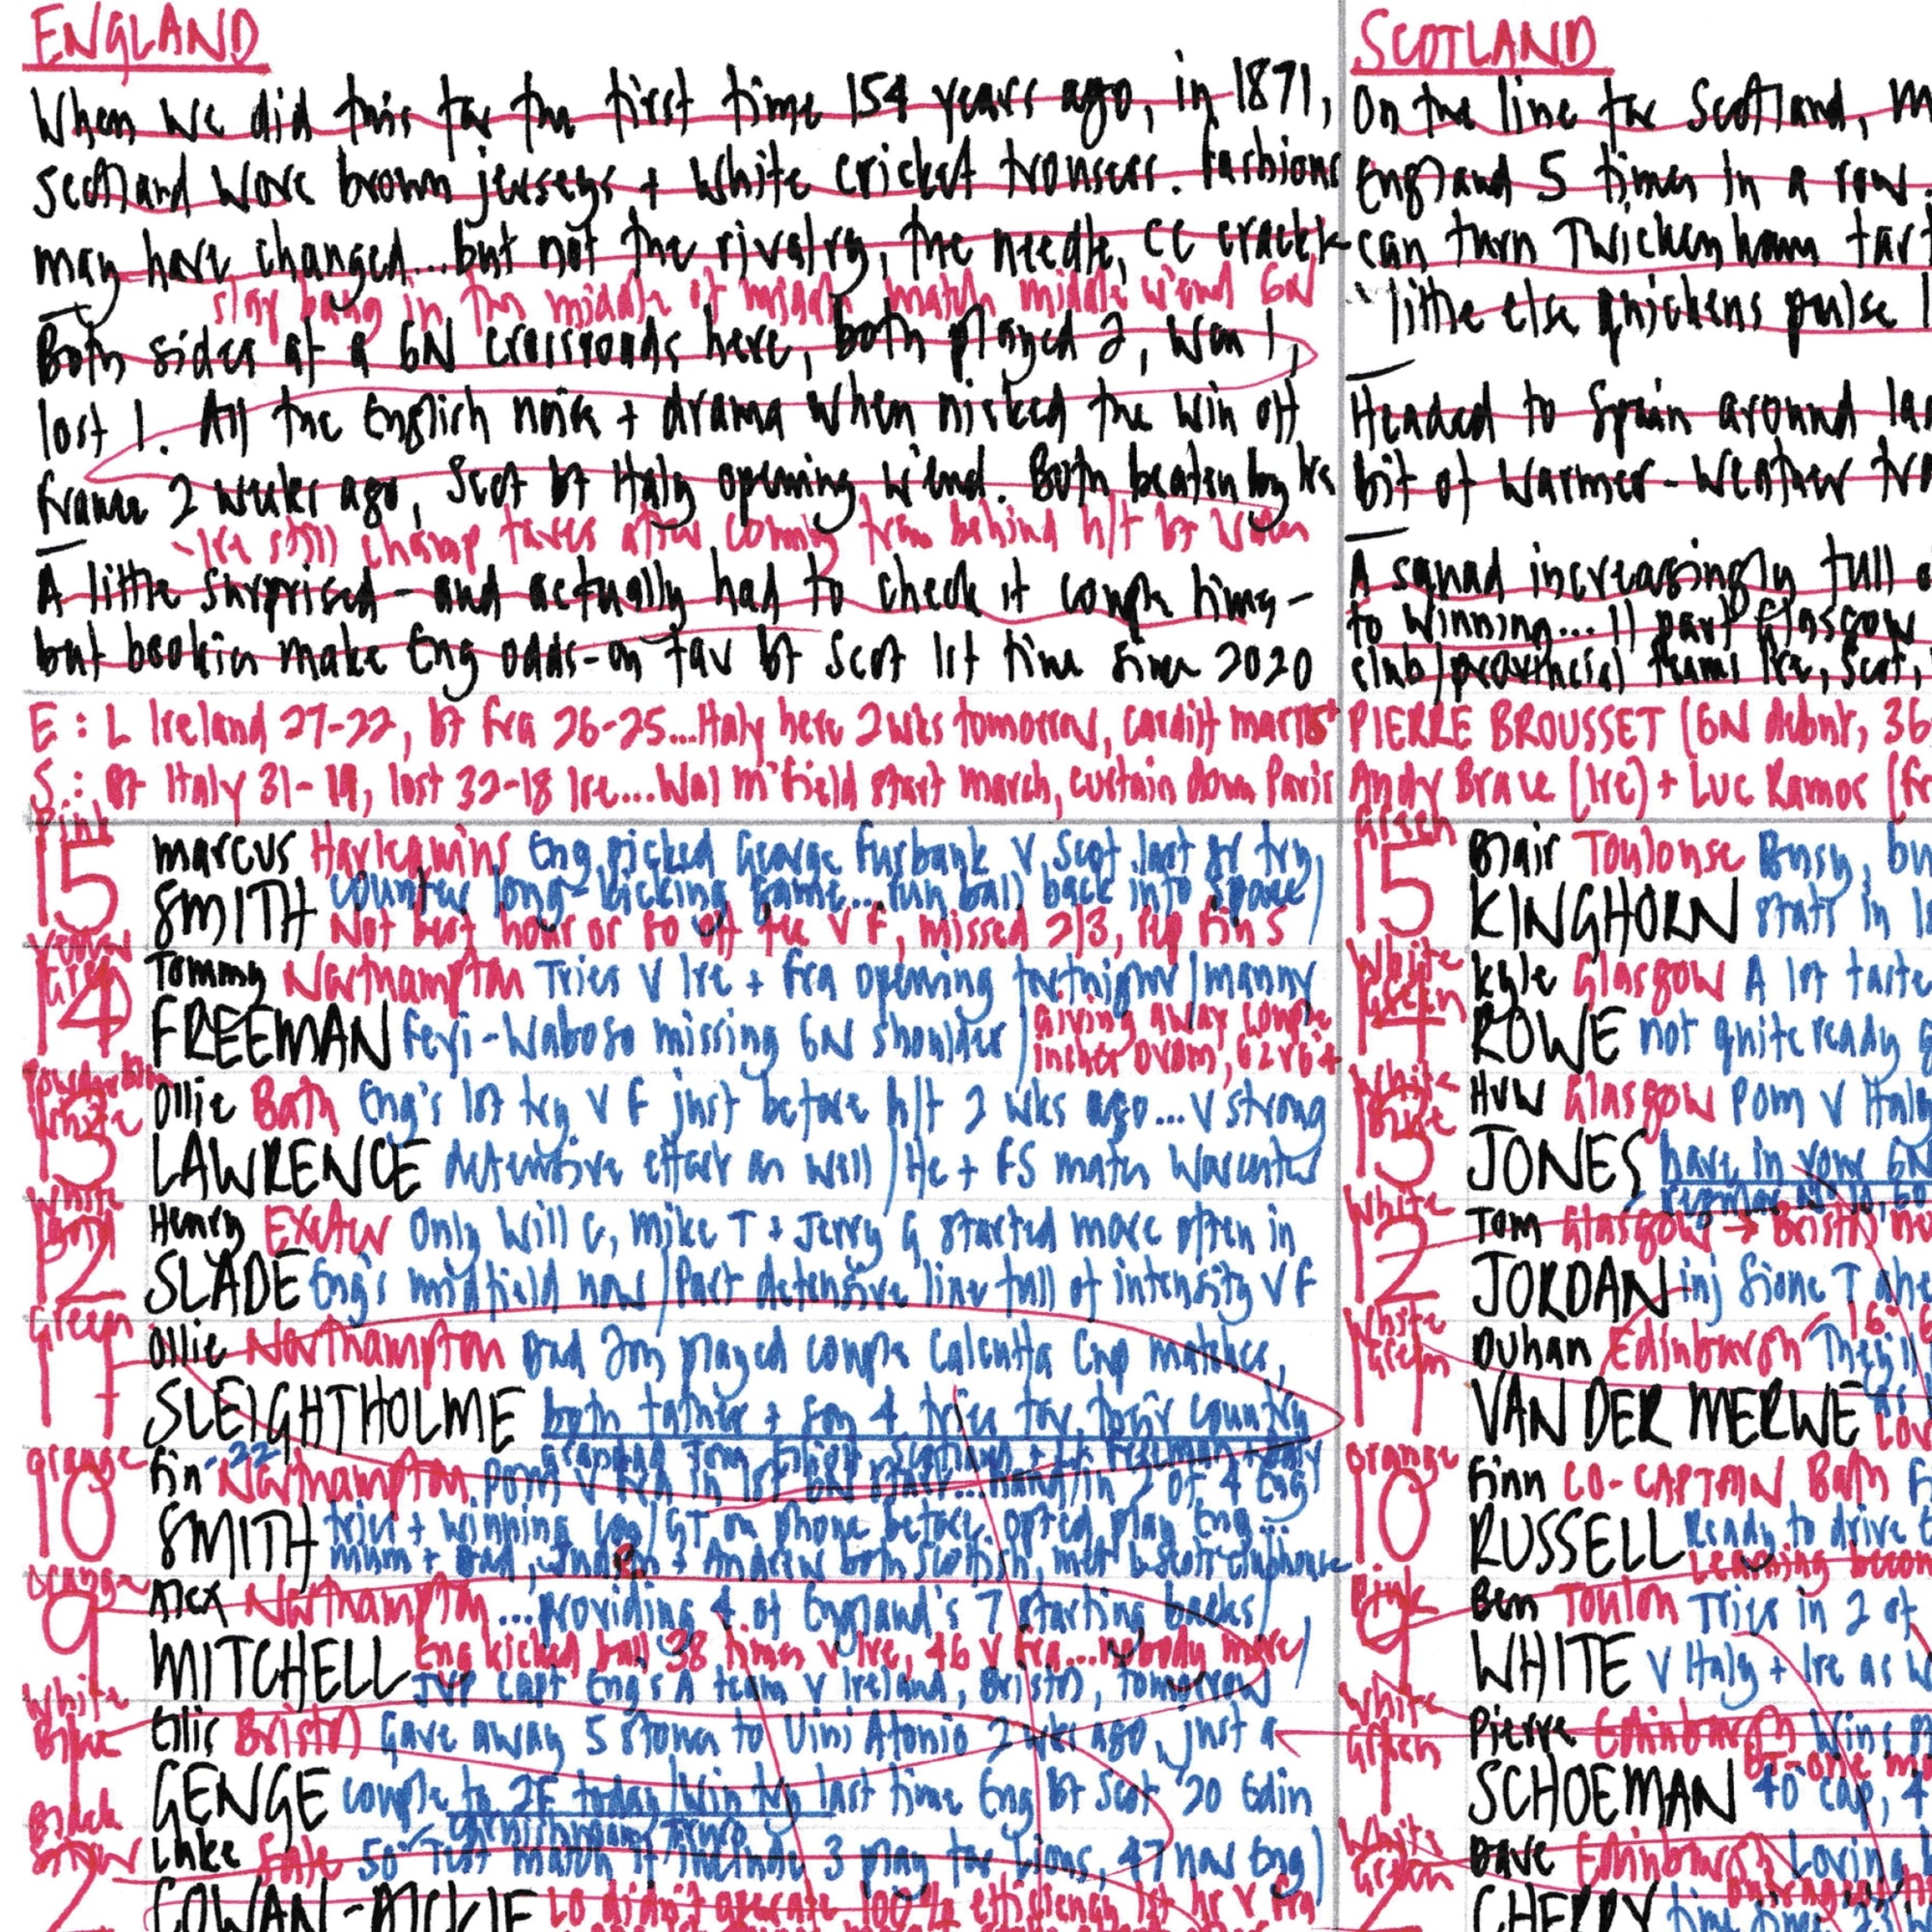 ENGLAND
When we did this for the first time 154 years ago, in 1871,
Scotland wore brown jerseys + white cricket trousers. Fashions
may have changed...but not the rivalry, the needle, CC crackle
stay bang in the middle of middle match middle w'end 6N
Both sides at a 6N crossroads here, both played 2, won 1,
lost 1. All the English noise + drama when nicked the win off
France 2 weeks ago, Scot bt Italy opening w'end. Both beaten by Ire
- Ire still champ faves after coming from behind h/t bt Wales
A little surprised - and actually had to check it couple times -
but bookies make Eng odds-on fav bt Scot 1st time since 2020
E: L Ireland 27-22, bt Fra 26-25...Italy here 2wks tomorrow, Cardiff mar 15
S: Bt Italy 31-19, lost 32-18 Ire...Wal M'field start march, curtain down Paris
Pink
15 Marcus Harlequins Eng picked George Furbank v Scot last yr try,
SMITH counter long-kicking game...run ball back into space
Not best hour or so off tee v F, missed 2/3, Fin S
Green
14 Tommy Northampton Tries v Ire + Fra opening fortnight/manny
FREEMAN Feyi-Waboso missing 6N shoulder
giving away couple
inches DVDM, 6'2 v 6'4
White
13 Ollie Bath Eng's 1st try v F just before h/t 2 wks ago...v strong
LAWRENCE defensive effort as well/He + FS mates Worcester
White
12 Henry Exeter Only Will G, Mike T + Jerry G started more often in
SLADE Eng's midfield now/Part defensive line full of intensity v F
Green
11 Ollie Northampton Dad Jon played couple Calcutta Cup matches,
SLEIGHTHOLME both father + son 4 tries for their country
Orange
10 Fin 22 Northampton POM v Fra in 1st 6N start...hand in 2 of 4 Eng
SMITH tries + winning GT on phone before opted play Eng...
mum + Dad, Judith + Andrew both Scottish, met clubhouse
Orange
9 Alex Northampton ...providing 4 of England's 7 starting backs
MITCHELL Eng kicked ball 38 times v Ire, 46 v Fra...nobody more
JVP capt Eng's A team v Ireland, Bristol, tomorrow
White
Blue
1 Ellis Bristol Gave away 5 stone to Uini Atonio 2 wks ago, just a
GENGE couple to ZF today/Win No last time Eng bt Scot '20 Edin
Black
2 Luke Sale 50th Test match if include 3 play for Lions, 47 now Eng
COWAN-DICKIE LO didn't operate 100% efficiency 1st hr v Fra
SCOTLAND
On the line for Scotland, m
England 5 times in a row
can turn Twickenham tart
little else quickens pulse
Headed to Spain around la
bit of warmer-weather tra
A squad increasingly full o
to winning...11 part Glasgow
club/provincial teams Ire, Scot,
PIERRE BROUSSET (6N debut, 36
Andy Brace (Ire) + Luc Ramos (Fr
Green
15 Blair Toulouse Busy, bu
KINGHORN stats in 1
White
Green
14 Kyle Glasgow A 1st taste
ROWE not quite ready
White
13 Huw Glasgow POM v Italy
JONES have in your 6N
White
12 Tom Glasgow → Bristol
JORDAN inj Sione T
White
Green
11 Duhan Edinburgh They'll
VAN DER MERWE
Orange
10 Finn CO-CAPTAIN Bath
RUSSELL Ready to drive
Learning becom
Pink
9 Ben Toulon Tries in 2 of
WHITE v Italy + Ire as w
White
Green
1 Pierre Edinburgh Wins
SCHOEMAN 40th cap, 4
White
Green
2 Dave Edinburgh Loving
CHERRY